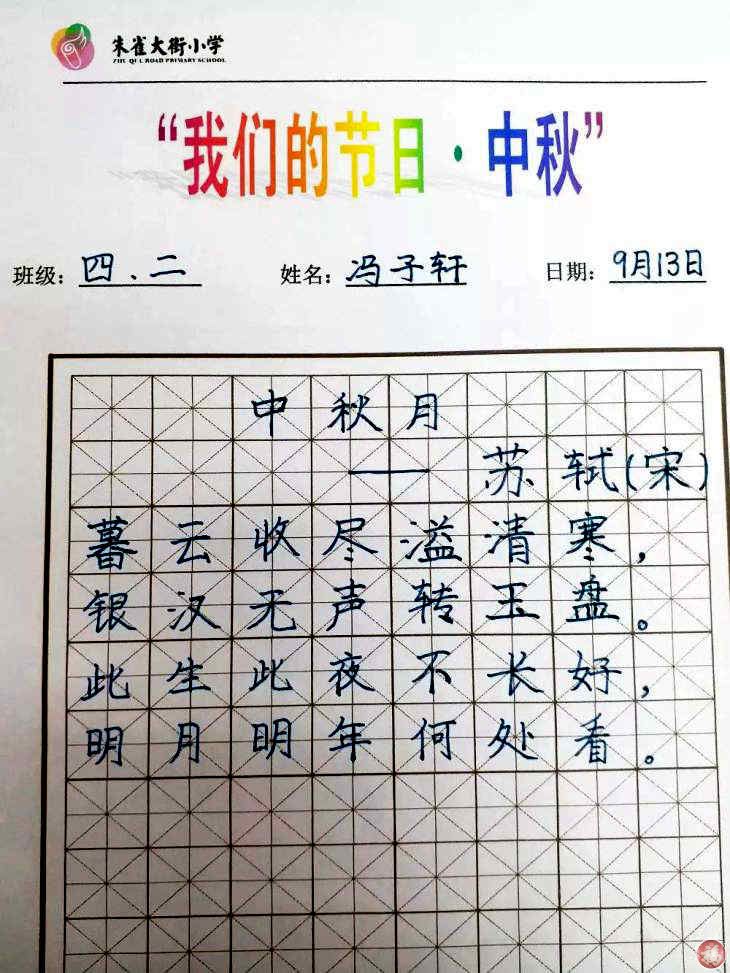 朱雀大街小学
ZHU QUE ROAD PRIMARY SCHOOL
“我们的节日·中秋”
班级：四、二 姓名：冯子轩 日期：9月13日
中秋月
——苏轼(宋)
暮云收尽溢清寒，
银汉无声转玉盘。
此生此夜不长好，
明月明年何处看。
福